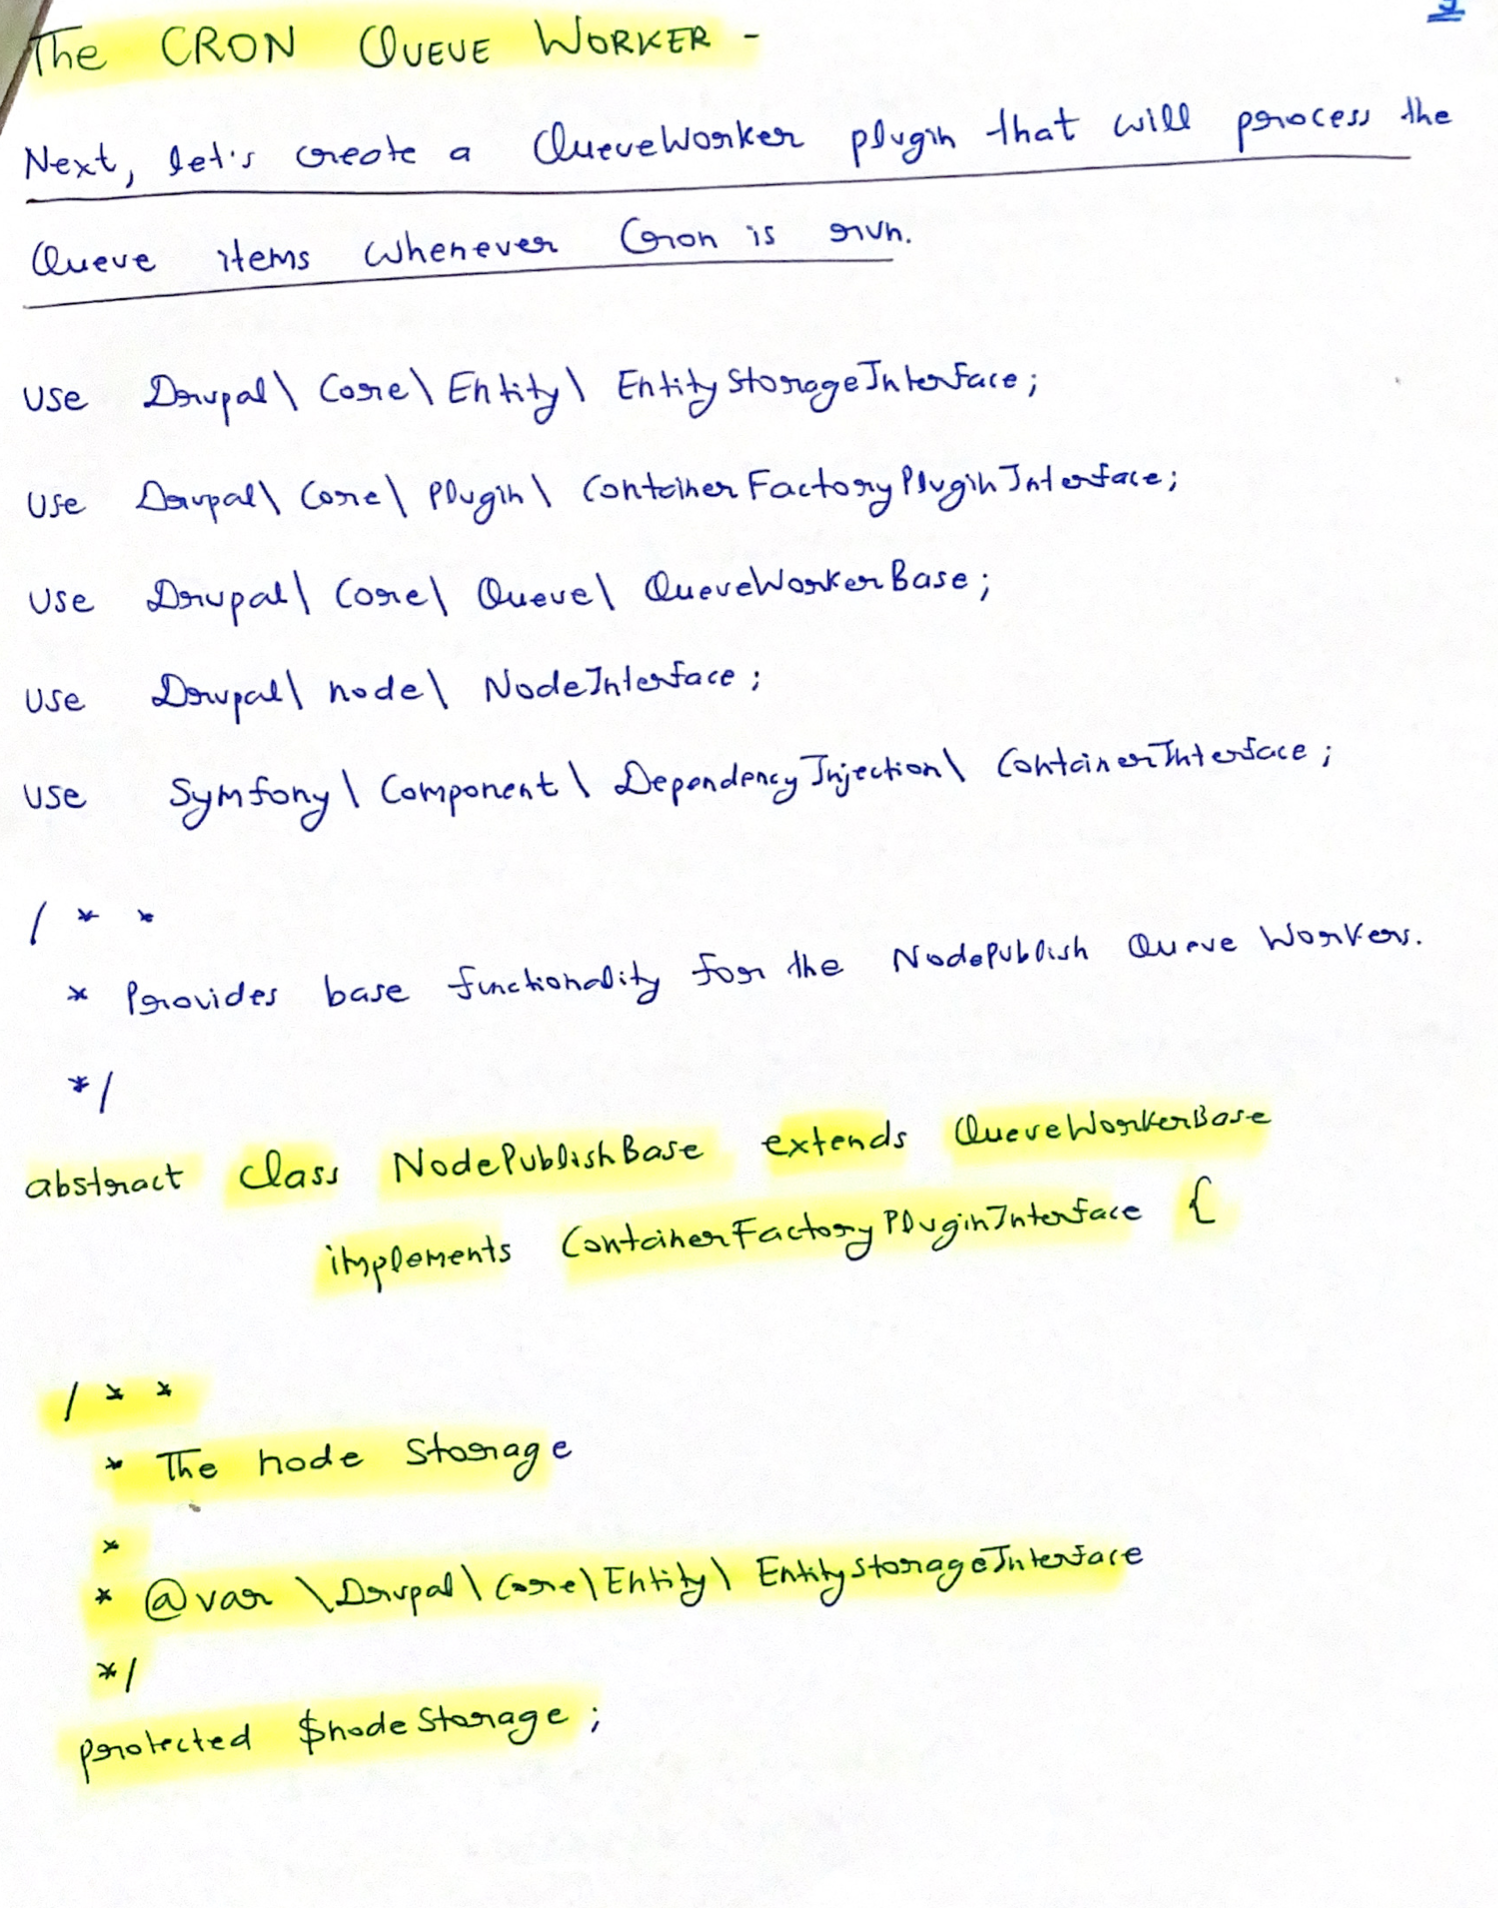 The CRON QUEUE WORKER -
Next, let's create a QueueWorker plugin that will process the
Queue items whenever Cron is run.
use Drupal\ Core\ Entity\ EntityStorageInterface;
use Drupal\ Core\ Plugin\ ContainerFactoryPluginInterface;
use Drupal\ Core\ Queue\ QueueWorkerBase;
use Drupal\ node\ NodeInterface;
use Symfony\ Component\ DependencyInjection\ ContainerInterface;
/**
* Provides base functionality for the NodePublish Queue Workers.
*/
abstract class NodePublishBase extends QueueWorkerBase
implements ContainerFactoryPluginInterface {
/**
* The node storage
*
* @var \Drupal\Core\Entity\ EntityStorageInterface
*/
protected $nodeStorage;